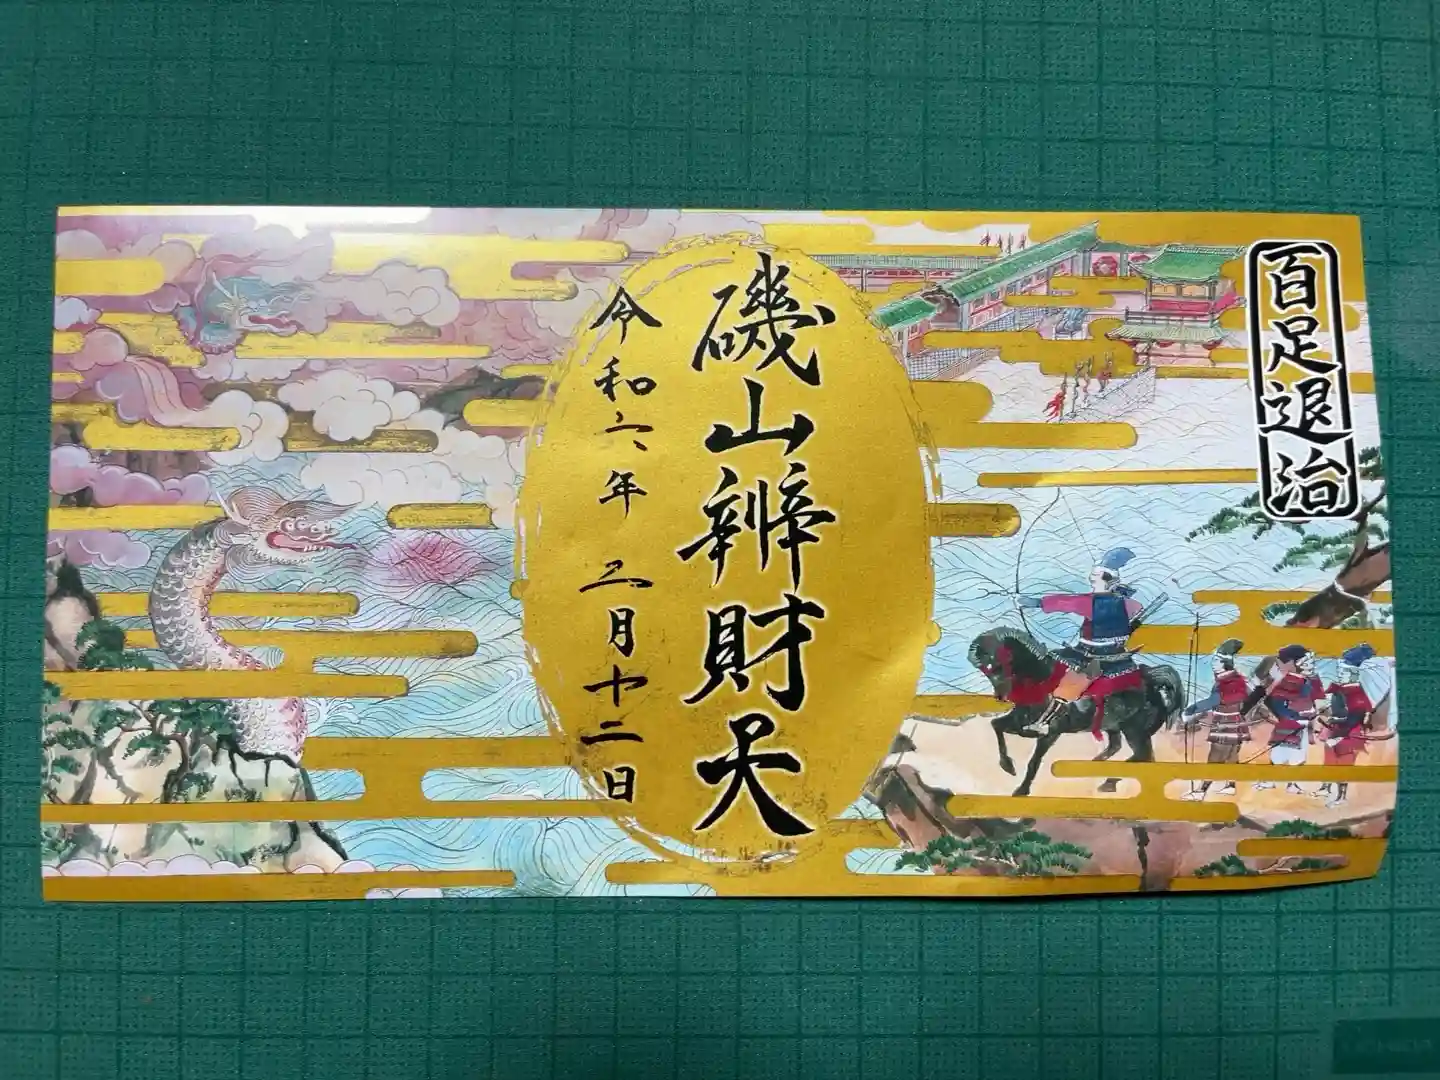 百足退治
磯山辨財天
令和六年 三月十二日